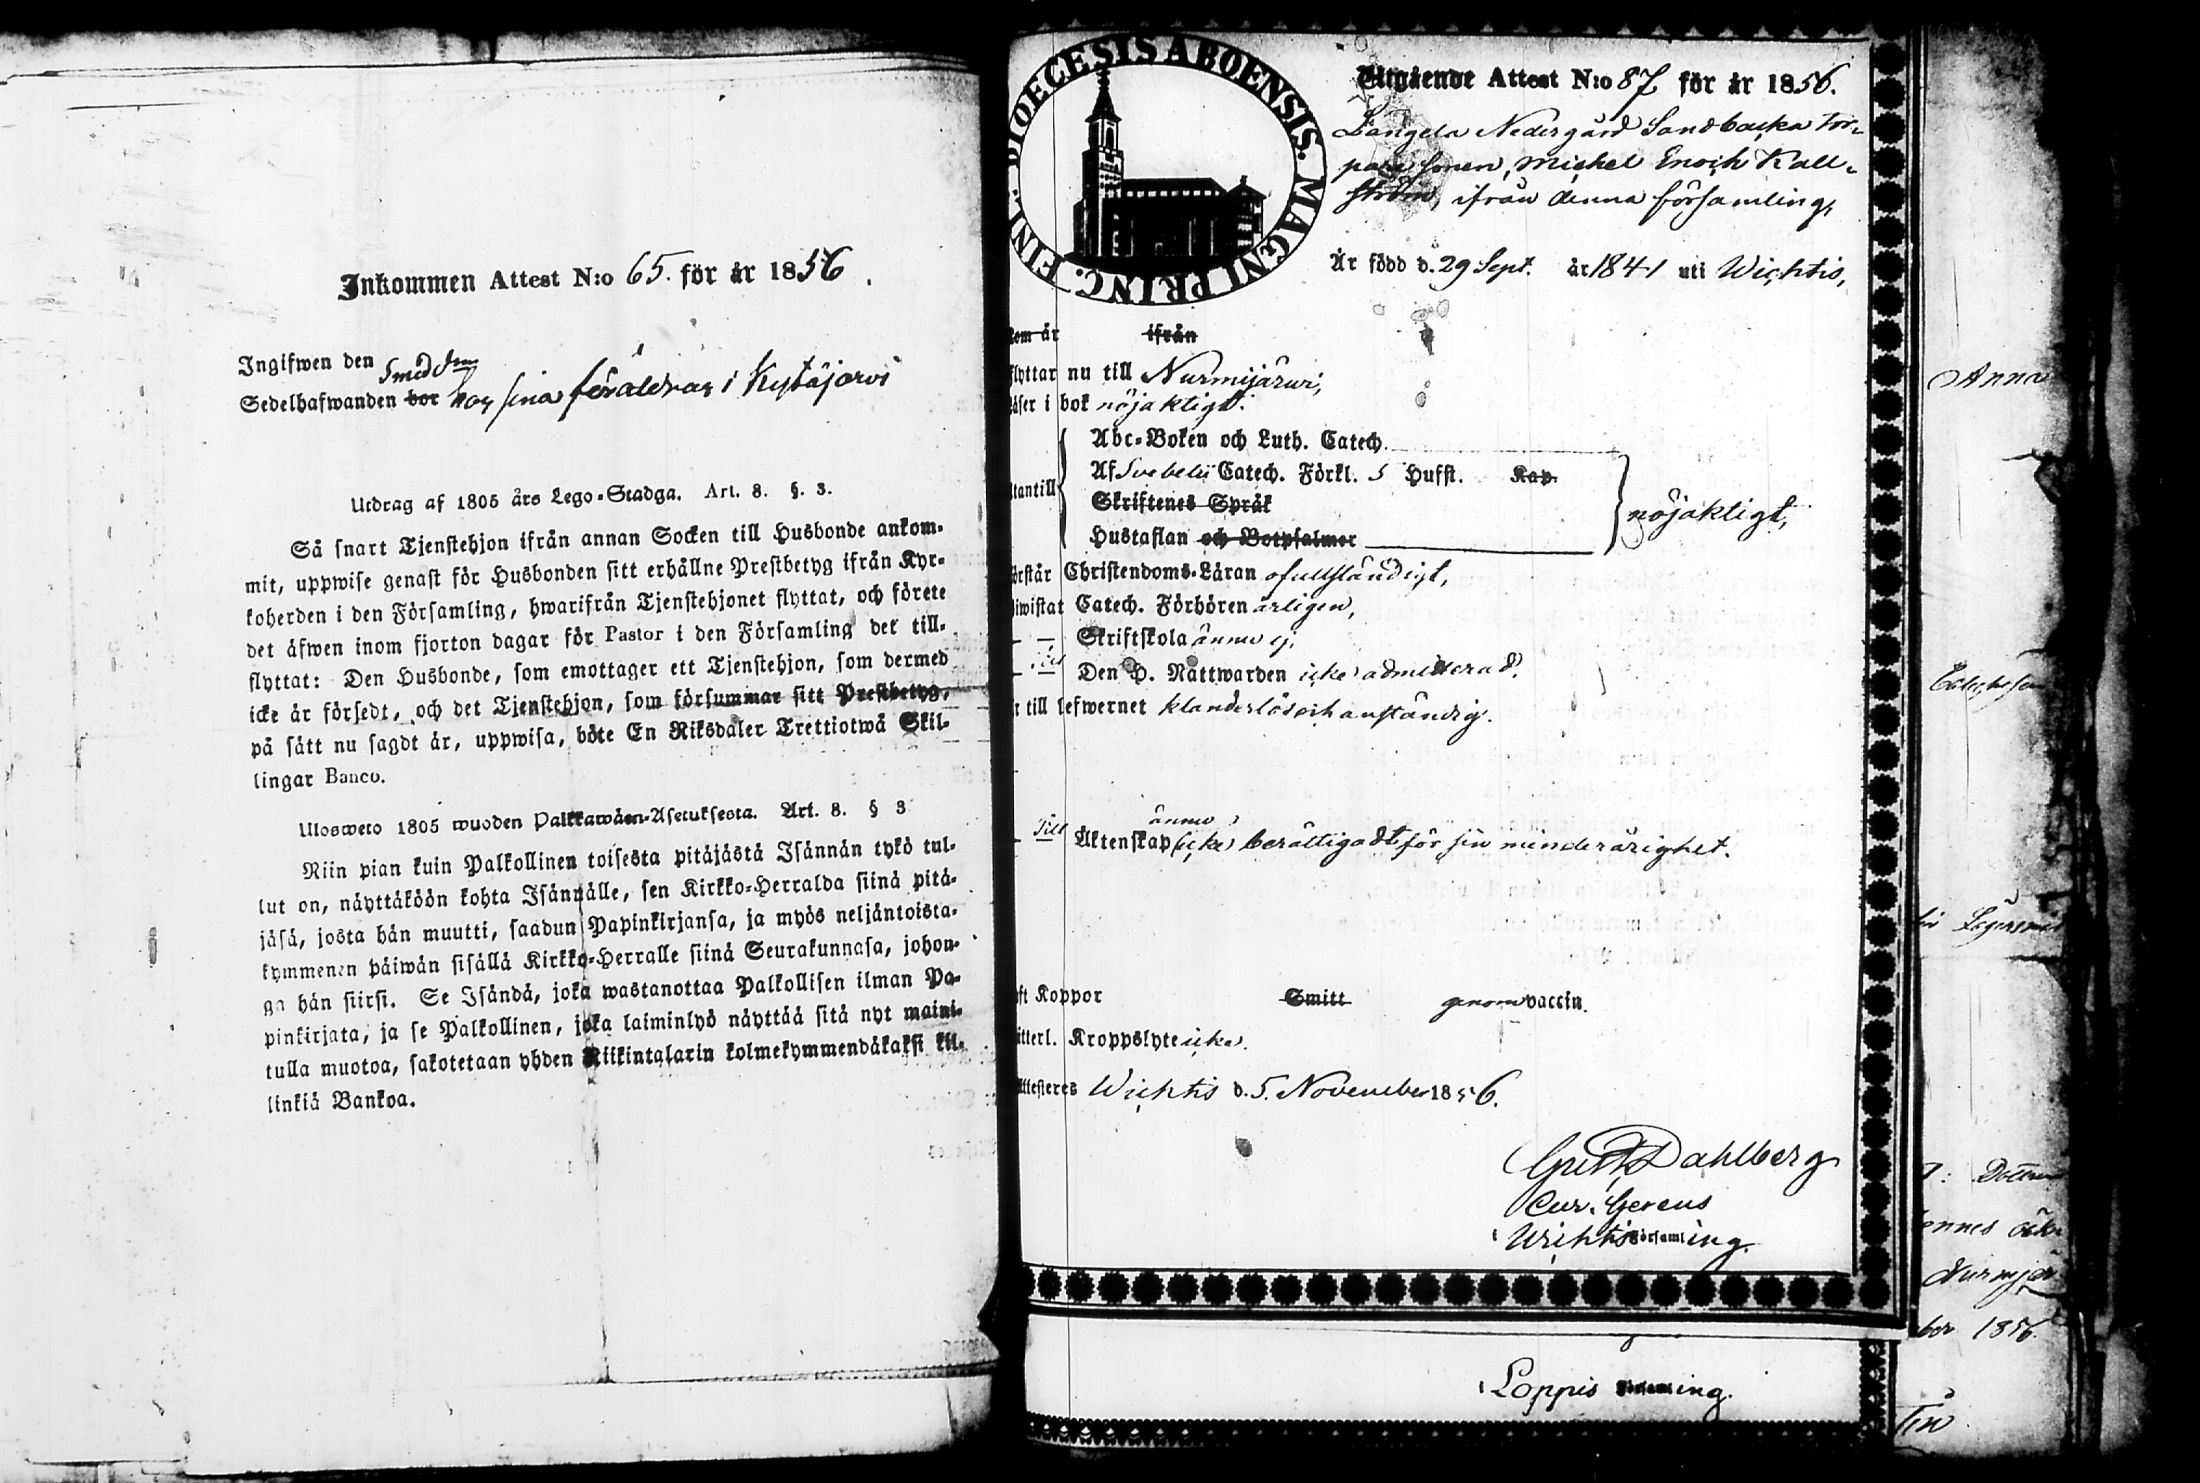 Inkommen Attest N:o 65. för år 1856.
Ingifwen den
Sedelhafwanden bor hos sina föräldrar i Kytäjärvi
Smed
Utdrag af 1805 års Lego-Stadga. Art. 8. §. 3.
Så snart Tjenstehjon ifrån annan Socken till Husbonde ankom-
mit, uppwise genast för Husbonden sitt erhållne Prestbetyg ifrån Kyr-
koherden i den Församling, hwarifrån Tjenstehjonet flyttat, och förete
det äfwen inom fjorton dagar för Pastor i den Församling det till-
flyttat: Den Husbonde, som emottager ett Tjenstehjon, som dermed
icke är försedt, och det Tjenstehjon, som försummar sitt Prestbetyg,
på sätt nu sagdt är, uppwisa, böte En Riksdaler Trettiotwå Skil-
lingar Banco.
Ulosweto 1805 wuoden Palkkawäen-Asetuksesta. Art. 8. § 3
Niin pian kuin Palkollinen toisesta pitäjästä Isännän tykö tul-
lut on, näyttäköön kohta Isännälle, sen Kirkko-Herralda siinä pitä-
jäsä, josta hän muutti, saadun Papinkirjansa, ja myös neljäntoista-
kymmenen päiwän sisällä Kirkko-Herralle siinä Seurakunnasa, johon-
ga hän siirsi. Se Isändä, joka wastanottaa Palkollisen ilman Pa-
pinkirjata, ja se Palkollinen, joka laiminlyö näyttää sitä nyt maini-
tulla muotoa, sakotetaan yhden Riikintalarin kolmekymmendäkaksi kil-
linkiä Bankoa.
FINL. DIOECESIS ABOENSIS. MAGNI PRINC.
Utgående Attest N:o 87 för år 1856.
Längelä Nedergård Sandbacka tor-
pare sonen, Michel Enoch Käll-
ström, ifrån denna församling,
Är född d. 29 Sept. år 1841 uti Wichtis,
kom år ifrån
flyttar nu till Nurmijärwi,
läser i bok nöjaktigt.
Abc-Boken och Luth. Catech.
Af Svebelii Catech. Förkl. 5 Hufst. Kap.
utantill
Skriftenes Språk
nöjaktigt,
Hustaflan och Botpsalmer
förstår Christendoms-Läran ofullständigt,
biwistat Catech. Förhören årligen,
— — Skriftskola ännu ej,
— — Till Den H. Nattwarden icke admitterad.
är till lefwernet klanderlös och anständig.
— Till Äktenskap (icke) ännu berättigad för sin minderårighet.
haft Koppor Smitt genom vaccin.
Witterl. Kroppslyte icke.
Attesteres Wichtis d. 5. November 1856.
Gust. Dahlberg
Cur. Gerens
i Wichtis Församling.
i Loppis Församling.
Anna
Nurmijär
ber 1856.